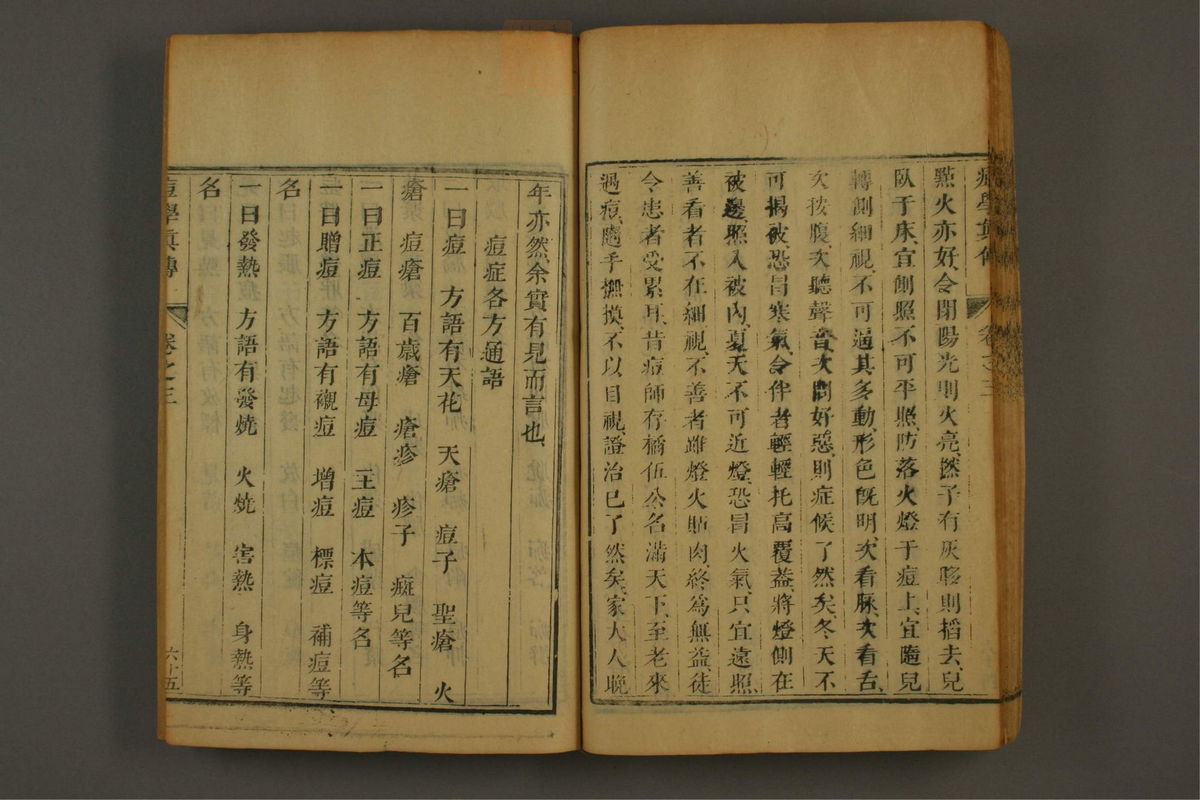 痘學真傳 卷之三
點火亦好、令閉陽光則火亮、撚子有灰胗則搯去、兒
臥于床、宜側照不可平照、防落火燈于痘上、宜隨兒
轉側細視、不可逼其多動、形色旣明、次看脉、次看舌、
次按腹、次聽聲音、次問好惡、則症候了然矣、冬天不
可揭被、恐冒寒氣、令伴者輕輕托高覆蓋、將燈側在
被邊、照入被內、夏天不可近燈、恐冒火氣、只宜遠照、
善看者不在細視、不善者雖燈火貼肉、終爲無益、徒
令患者受累耳、昔痘師存橘伍公、名滿天下、至老來
遇痘、隨手撫摸、不以目視、證治已了然矣、家大人晚
年亦然、余實有見而言也、
痘症各方通語
一曰痘 方語有天花 天瘡 痘子 聖瘡 火
瘡 痘瘡 百歲瘡 瘡疹 疹子 癍兒等名
一曰正痘 方語有母痘 主痘 本痘等名
一曰贈痘 方語有襯痘 增痘 標痘 補痘等
名
一曰發熱 方語有發燒 火燒 害熱 身熱等
名
痘學眞傳 卷之三 六十五